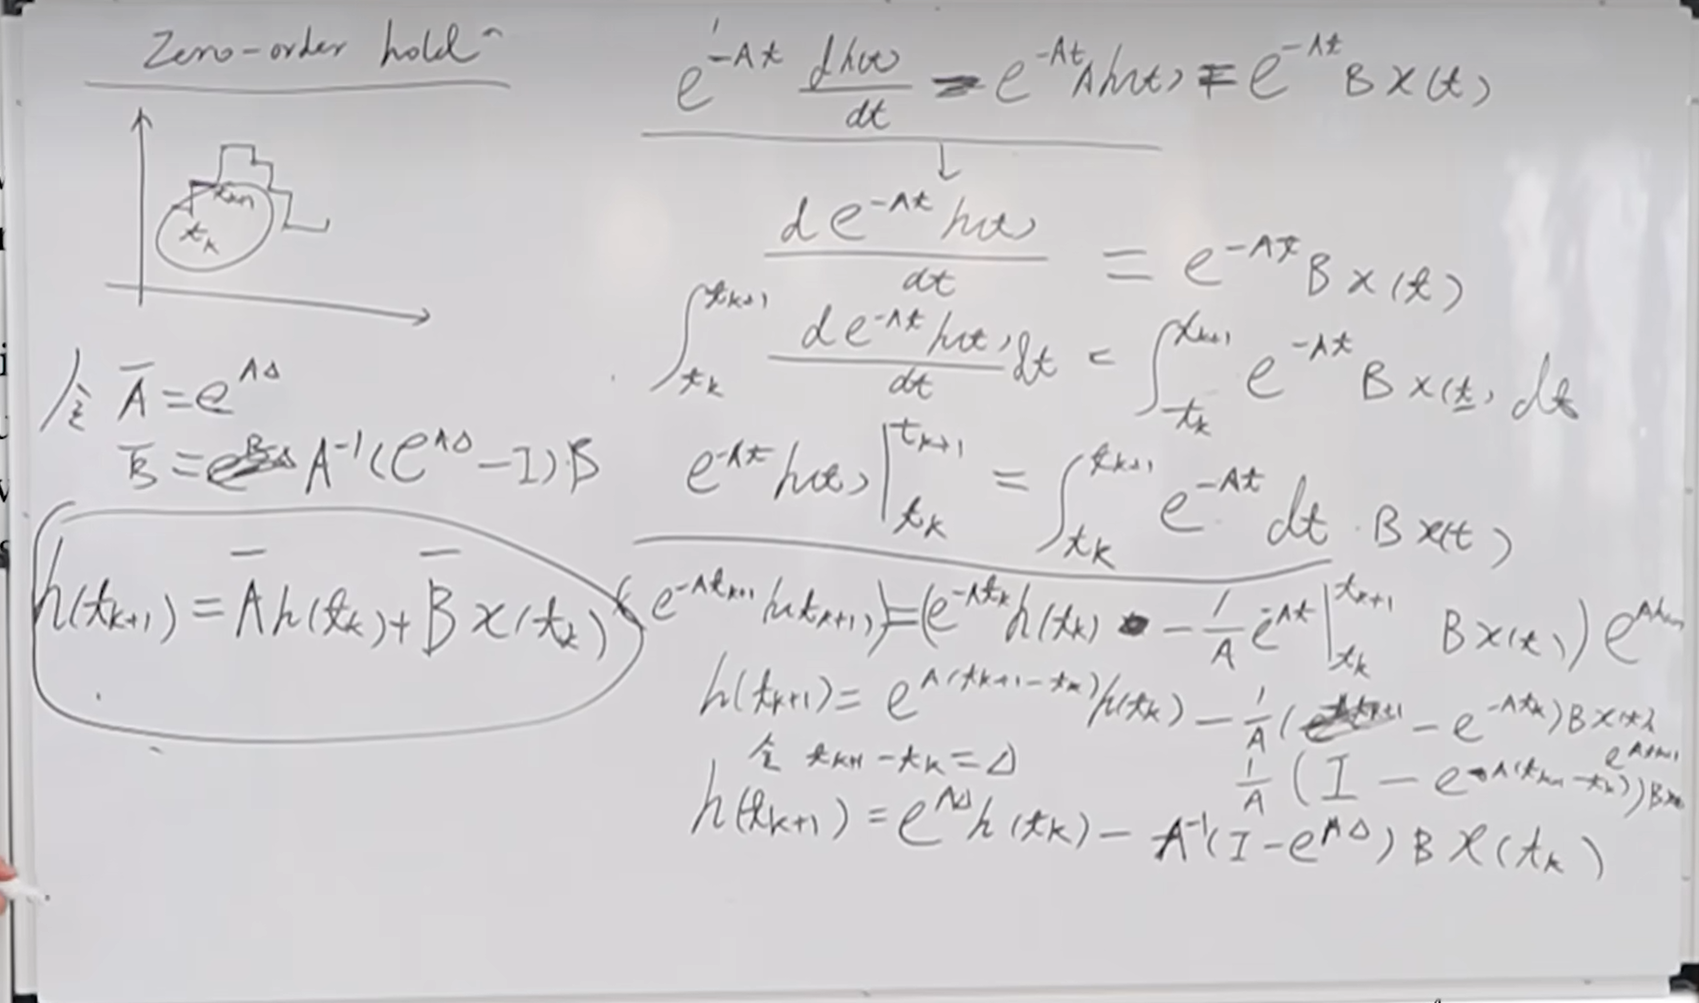 Zero-order hold
t_k
x_{k+1}
令 Ā = e^{AΔ}
B̄ = A^{-1}(e^{AΔ} - I)B
h(t_{k+1}) = Ā h(t_k) + B̄ x(t_k)
e^{-At} dh(t)/dt - e^{-At} A h(t) = e^{-At} B x(t)
↓
d e^{-At} h(t) / dt = e^{-At} B x(t)
∫_{t_k}^{t_{k+1}} d e^{-At} h(t) / dt dt = ∫_{t_k}^{t_{k+1}} e^{-At} B x(t) dt
e^{-At} h(t) |_{t_k}^{t_{k+1}} = ∫_{t_k}^{t_{k+1}} e^{-At} dt · B x(t)
(e^{-At_{k+1}} h(t_{k+1})) = (e^{-At_k} h(t_k) - 1/A e^{-At} |_{t_k}^{t_{k+1}} B x(t)) e^{At_{k+1}}
h(t_{k+1}) = e^{A(t_{k+1} - t_k)} h(t_k) - 1/A ( - e^{-At_k}) B x(t)
e^{At_{k+1}}
令 t_{k+1} - t_k = Δ
1/A (I - e^{A(t_{k+1} - t_k)}) B
h(t_{k+1}) = e^{AΔ} h(t_k) - A^{-1}(I - e^{AΔ}) B x(t_k)